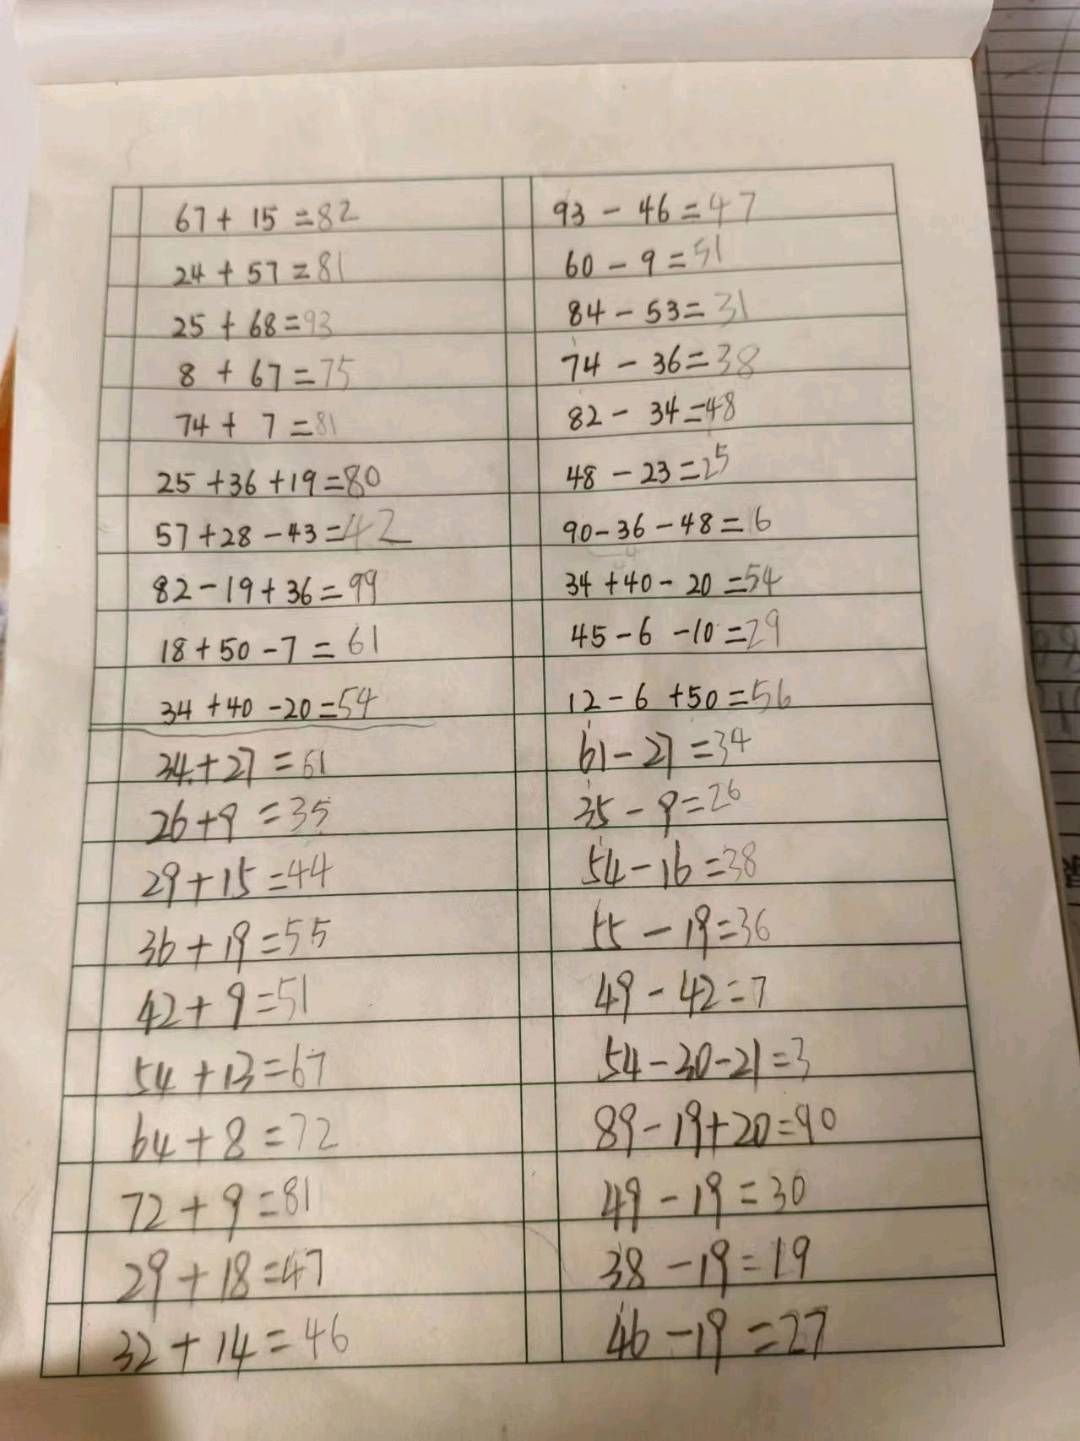 67 + 15 = 82
24 + 57 = 81
25 + 68 = 93
8 + 67 = 75
74 + 7 = 81
25 + 36 + 19 = 80
57 + 28 - 43 = 42
82 - 19 + 36 = 99
18 + 50 - 7 = 61
34 + 40 - 20 = 54
34 + 27 = 61
26 + 9 = 35
29 + 15 = 44
36 + 19 = 55
42 + 9 = 51
54 + 13 = 67
64 + 8 = 72
72 + 9 = 81
29 + 18 = 47
32 + 14 = 46
93 - 46 = 47
60 - 9 = 51
84 - 53 = 31
74 - 36 = 38
82 - 34 = 48
48 - 23 = 25
90 - 36 - 48 = 6
34 + 40 - 20 = 54
45 - 6 - 10 = 29
12 - 6 + 50 = 56
61 - 27 = 34
35 - 9 = 26
54 - 16 = 38
55 - 19 = 36
49 - 42 = 7
54 - 30 - 21 = 3
89 - 19 + 20 = 90
49 - 19 = 30
38 - 19 = 19
46 - 19 = 27